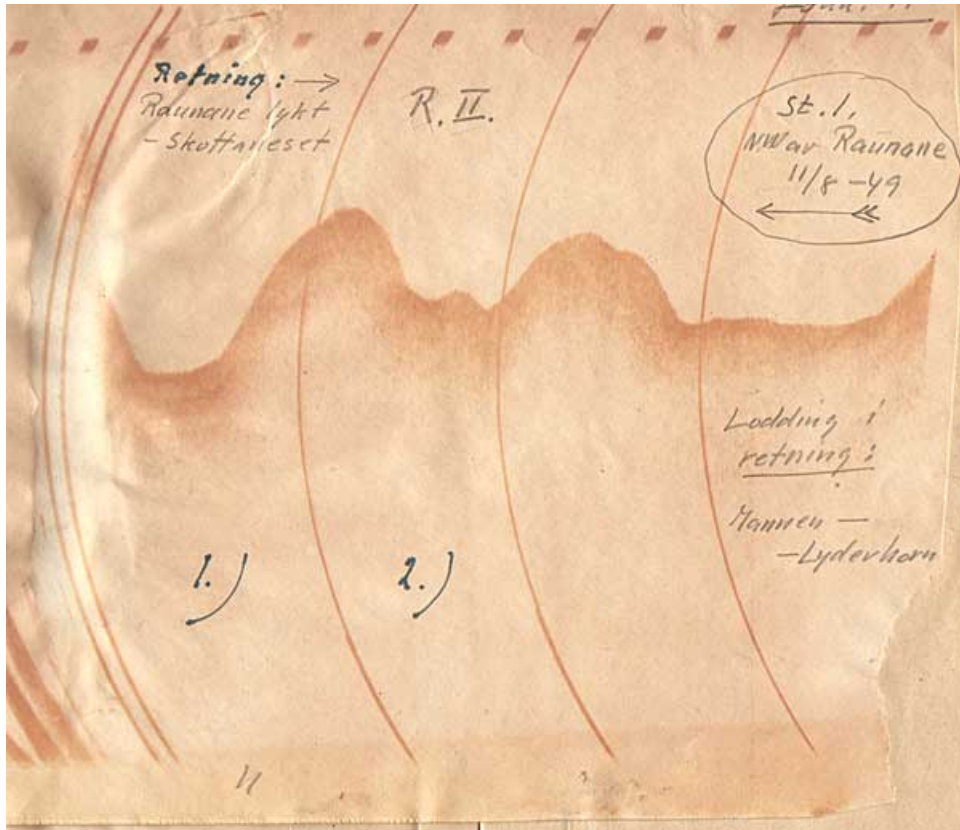 Retning: →
Raunane lykt
- Skottneset
R. II.
St. 1,
NW av Raunane
11/8 -49
Lodding i
retning:
Mannen —
— Lyderhorn
1.)
2.)